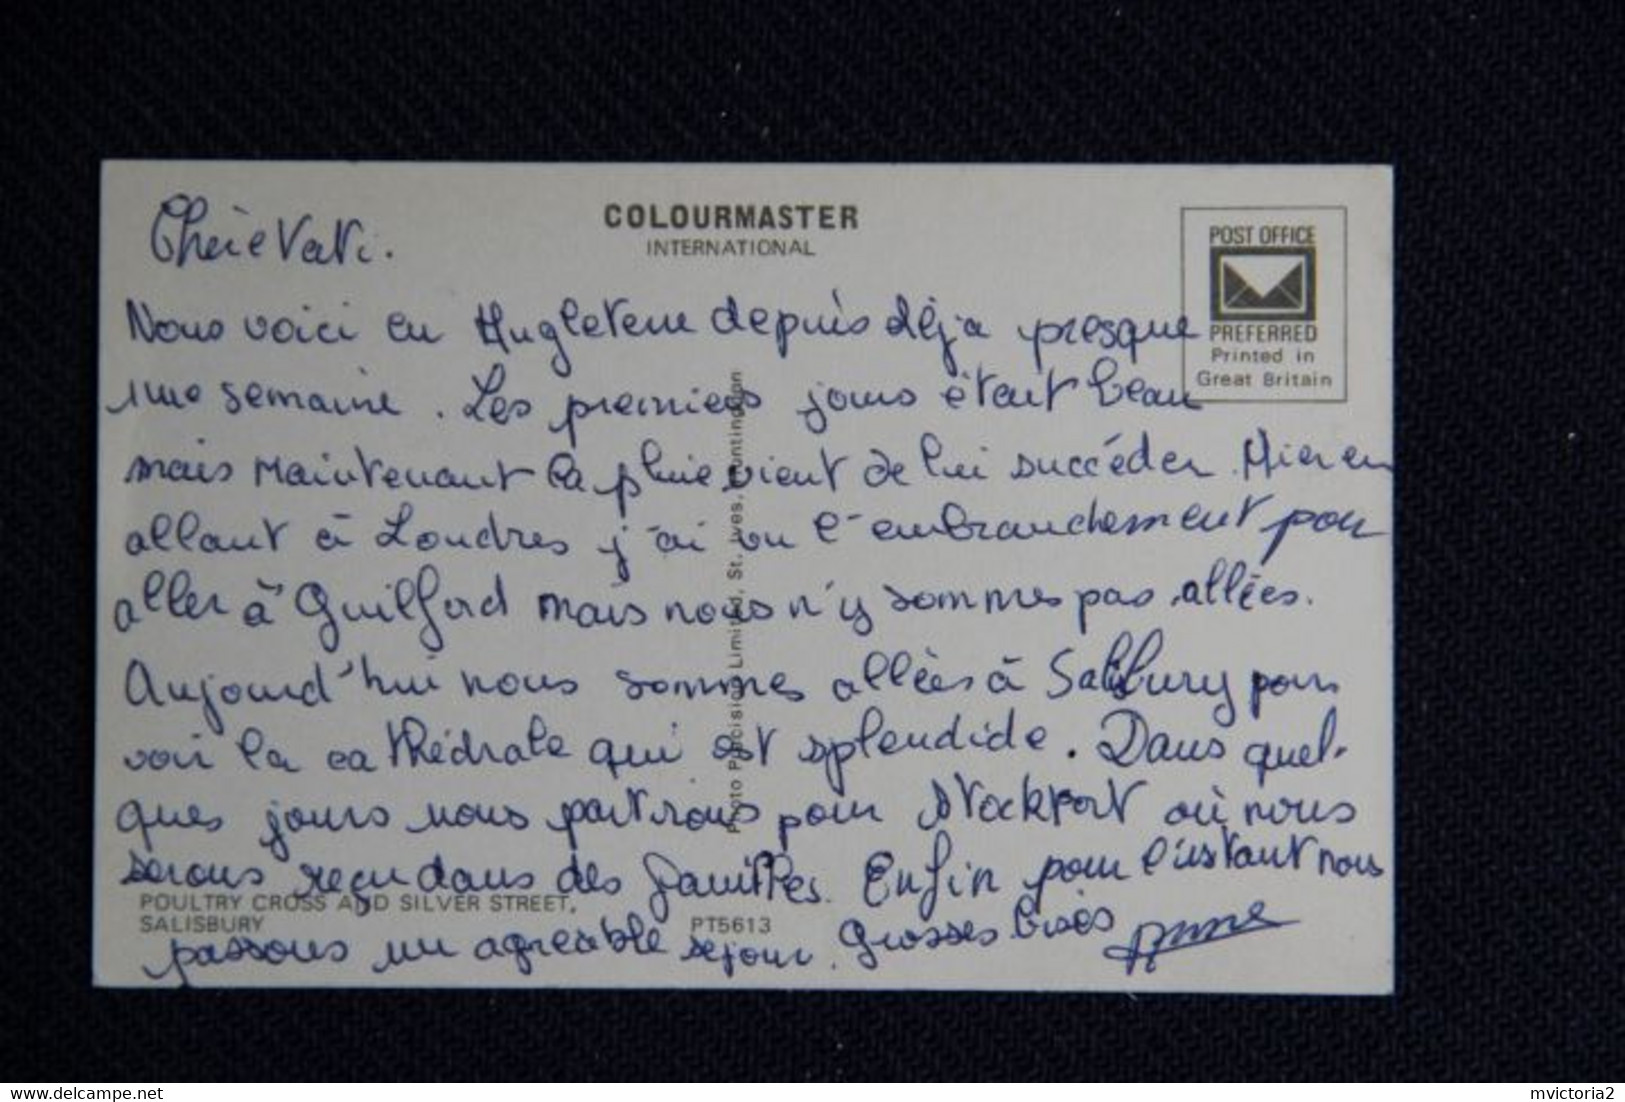 COLOURMASTER
INTERNATIONAL
POST OFFICE
PREFERRED
Printed in
Great Britain
Chère Vati.
Nous voici en Angleterre depuis déjà presque
1 une semaine. Les premiers jours étant beau
mais maintenant la pluie vient de lui succéder. Hier en
allant à Londres j'ai vu l'embranchement pour
aller à Guilford mais nous n'y sommes pas allées.
Aujourd'hui nous sommes allées à Salisbury pour
voir la cathédrale qui est splendide. Dans quel-
ques jours nous partirons pour Stockport où nous
serons reçu dans des familles. Enfin pour l'instant nous
passons un agréable séjour. Grosses bises Anne
Photo Precision Limited, St. Ives, Huntingdon
POULTRY CROSS AND SILVER STREET,
SALISBURY
PT5613
delcampe.net
mvictoria2